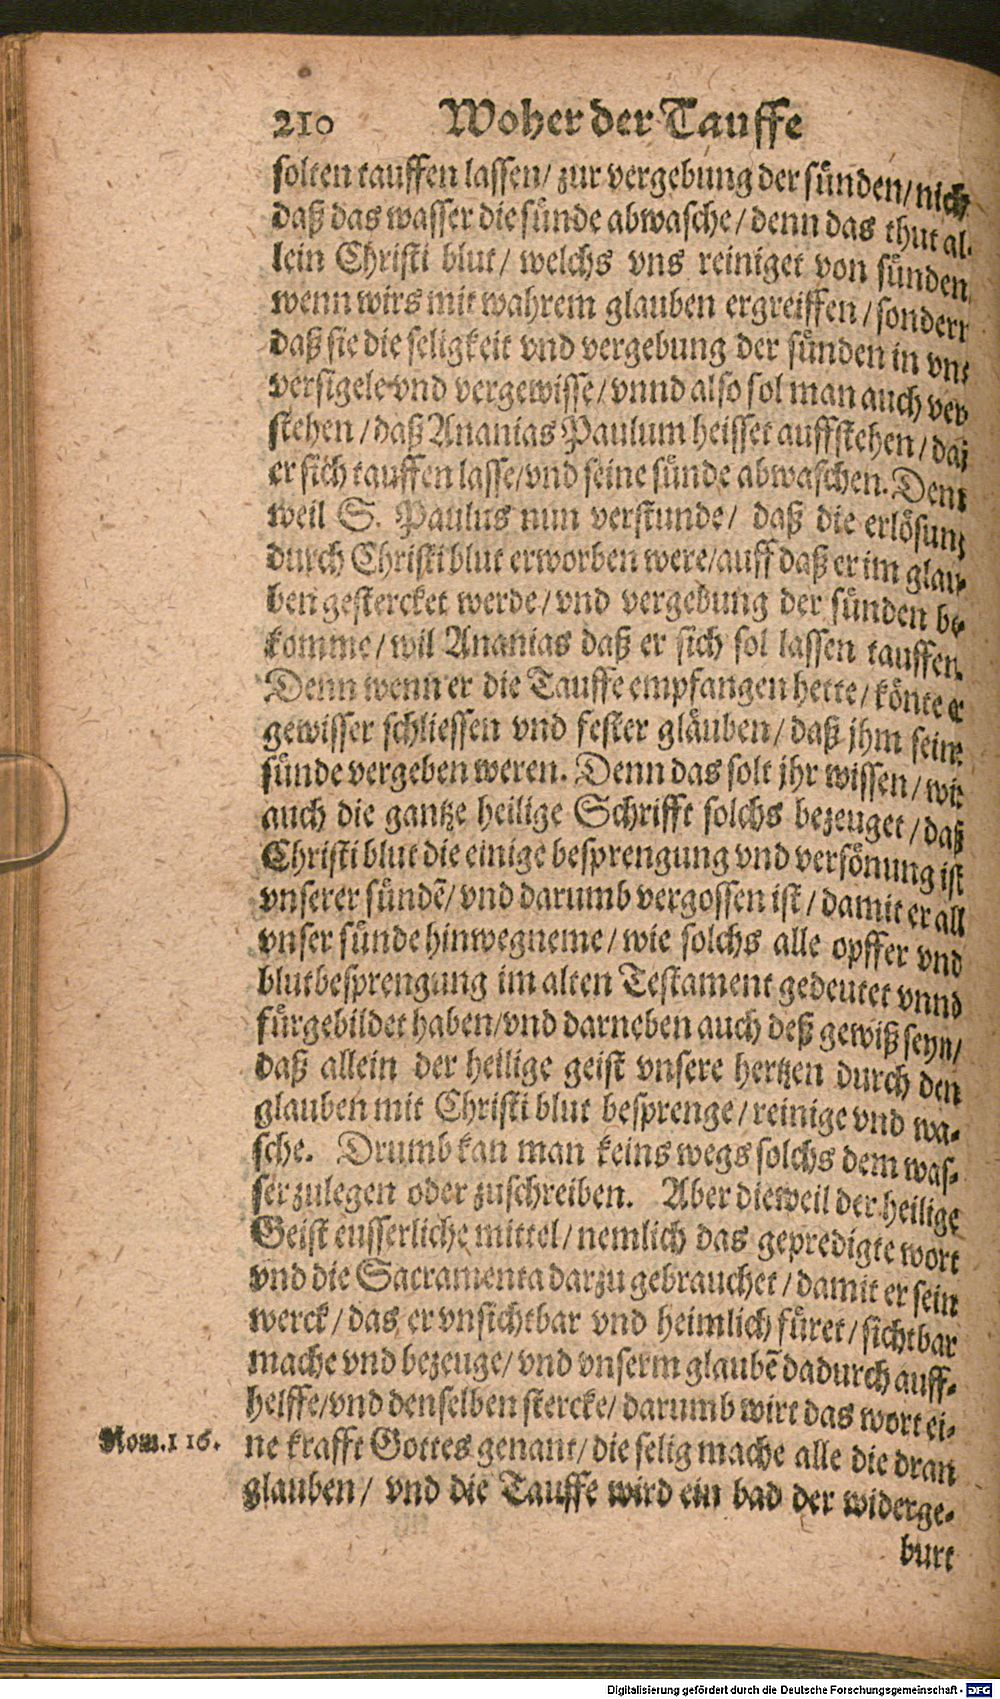 210 Woher der Tauffe
solten tauffen lassen/ zur vergebung der sünden/ nich
daß das wasser die sünde abwasche/ denn das thut al-
lein Christi blut/ welchs vns reiniget von sünden
wenn wirs mit wahrem glauben ergreiffen/ sondern
daß sie die seligkeit vnd vergebung der sünden in vns
versigele vnd vergewisse/ vnnd also sol man auch ver
stehen/ daß Ananias Paulum heisset auffstehen/ daß
er sich tauffen lasse/ vnd seine sünde abwaschen. Denn
weil S. Paulus nun verstunde/ daß die erlösung
durch Christi blut erworben were/ auff daß er im glau-
ben gestercket werde/ vnd vergebung der sünden be-
komme/ wil Ananias daß er sich sol lassen tauffen.
Denn wenn er die Tauffe empfangen hette/ könte er
gewisser schliessen vnd fester gläuben/ daß jhm seine
sünde vergeben weren. Denn das solt jhr wissen/ wie
auch die gantze heilige Schrifft solchs bezeuget/ daß
Christi blut die einige besprengung vnd versönung ist
vnserer sündẽ/ vnd darumb vergossen ist/ damit er all
vnser sünde hinwegneme/ wie solchs alle opffer vnd
blutbesprengung im alten Testament gedeutet vnnd
fürgebildet haben/ vnd darneben auch deß gewiß seyn/
daß allein der heilige geist vnsere hertzen durch den
glauben mit Christi blut besprenge/ reinige vnd wa-
sche. Drumb kan man keins wegs solchs dem was-
ser zulegen oder zuschreiben. Aber dieweil der heilige
Geist eusserliche mittel/ nemlich das gepredigte wort
vnd die Sacramenta darzu gebrauchet/ damit er sein
werck/ das er vnsichtbar vnd heimlich füret/ sichtbar
mache vnd bezeuge/ vnd vnserm glaubẽ dadurch auff-
helffe/ vnd denselben stercke/ darumb wirt das wort ei-
Rom. 1 16. ne krafft Gottes genant/ die selig mache alle die dran
glauben/ vnd die Tauffe wird ein bad der widerge-
burt
Digitalisierung gefördert durch die Deutsche Forschungsgemeinschaft - DFG